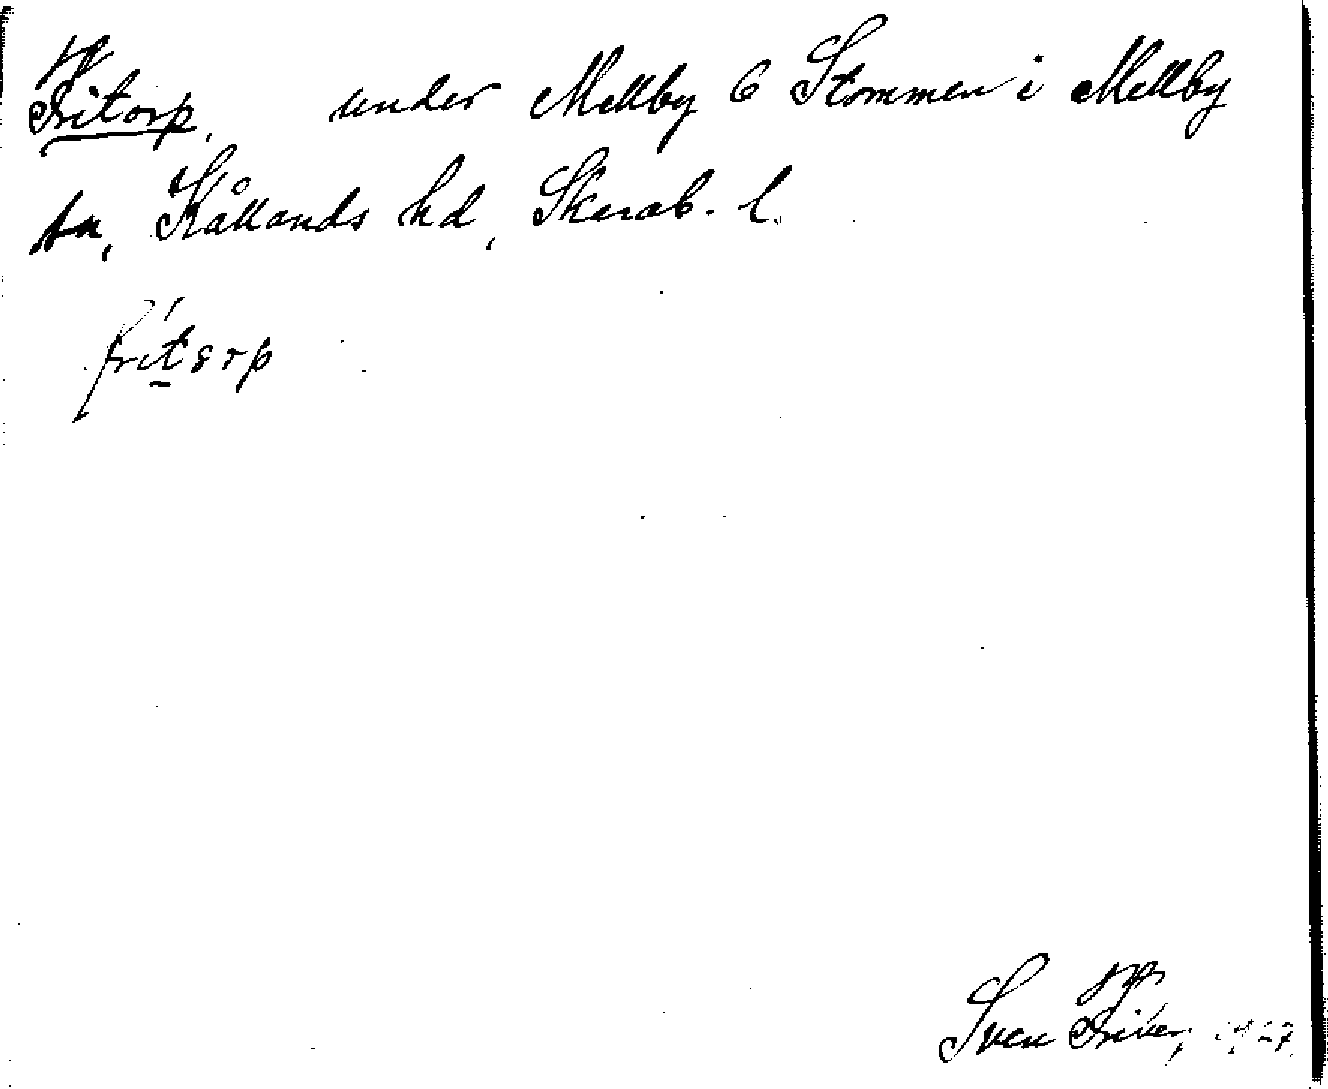 Fritorp, under Mellby 6 Stommen i Mellby
sn, Kållands hd, Skarab. l.
fritorp
Sven Friberg, 1927